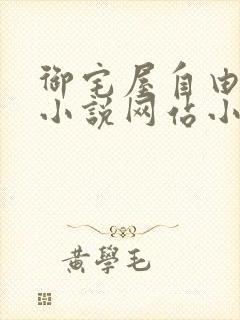 御宅屋自由
小说网佔小
黄學毛